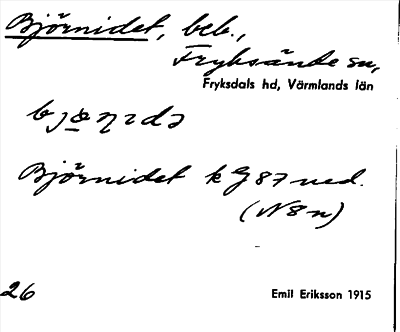 Björnidet, beb.,
Fryksände sn,
Fryksdals hd, Värmlands län
Björnidet k G 87 ned.
(N8n)
26
Emil Eriksson 1915